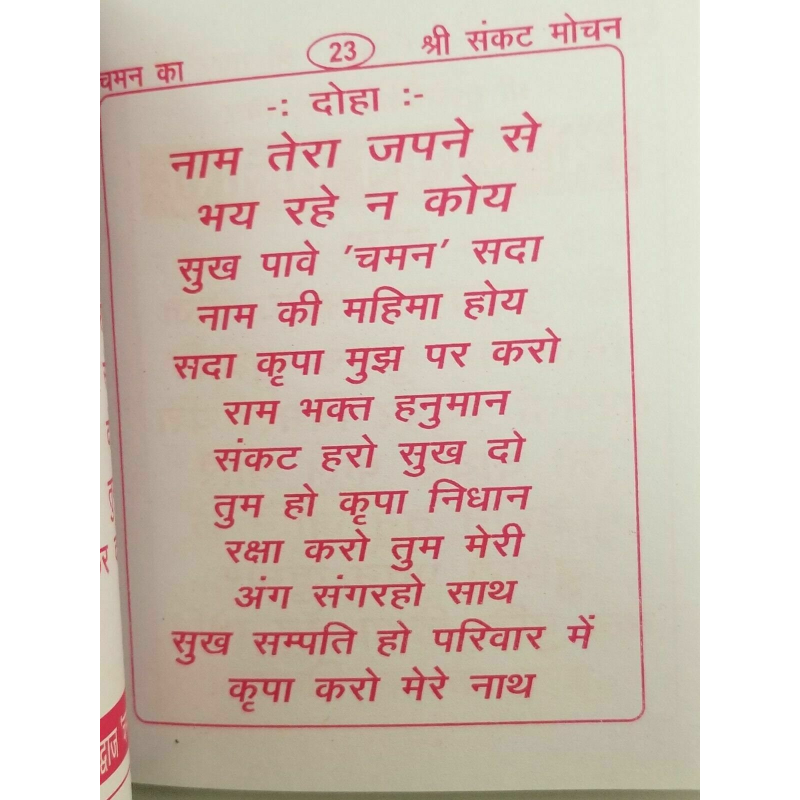 चमन का
23
श्री संकट मोचन
-: दोहा :-
नाम तेरा जपने से
भय रहे न कोय
सुख पावे 'चमन' सदा
नाम की महिमा होय
सदा कृपा मुझ पर करो
राम भक्त हनुमान
संकट हरो सुख दो
तुम हो कृपा निधान
रक्षा करो तुम मेरी
अंग संगरहो साथ
सुख सम्पति हो परिवार में
कृपा करो मेरे नाथ